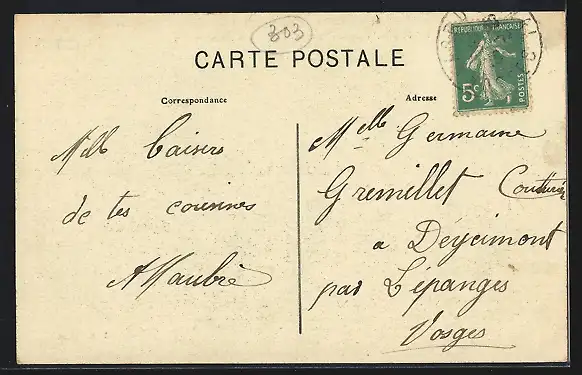 803
CARTE POSTALE
Correspondance
Adresse
REPUBLIQUE FRANÇAISE
5c
POSTES
Mille baisers
de tes cousines
Melle Germaine
Gremillet Couturière
a Deycimont
par Lépanges
Vosges